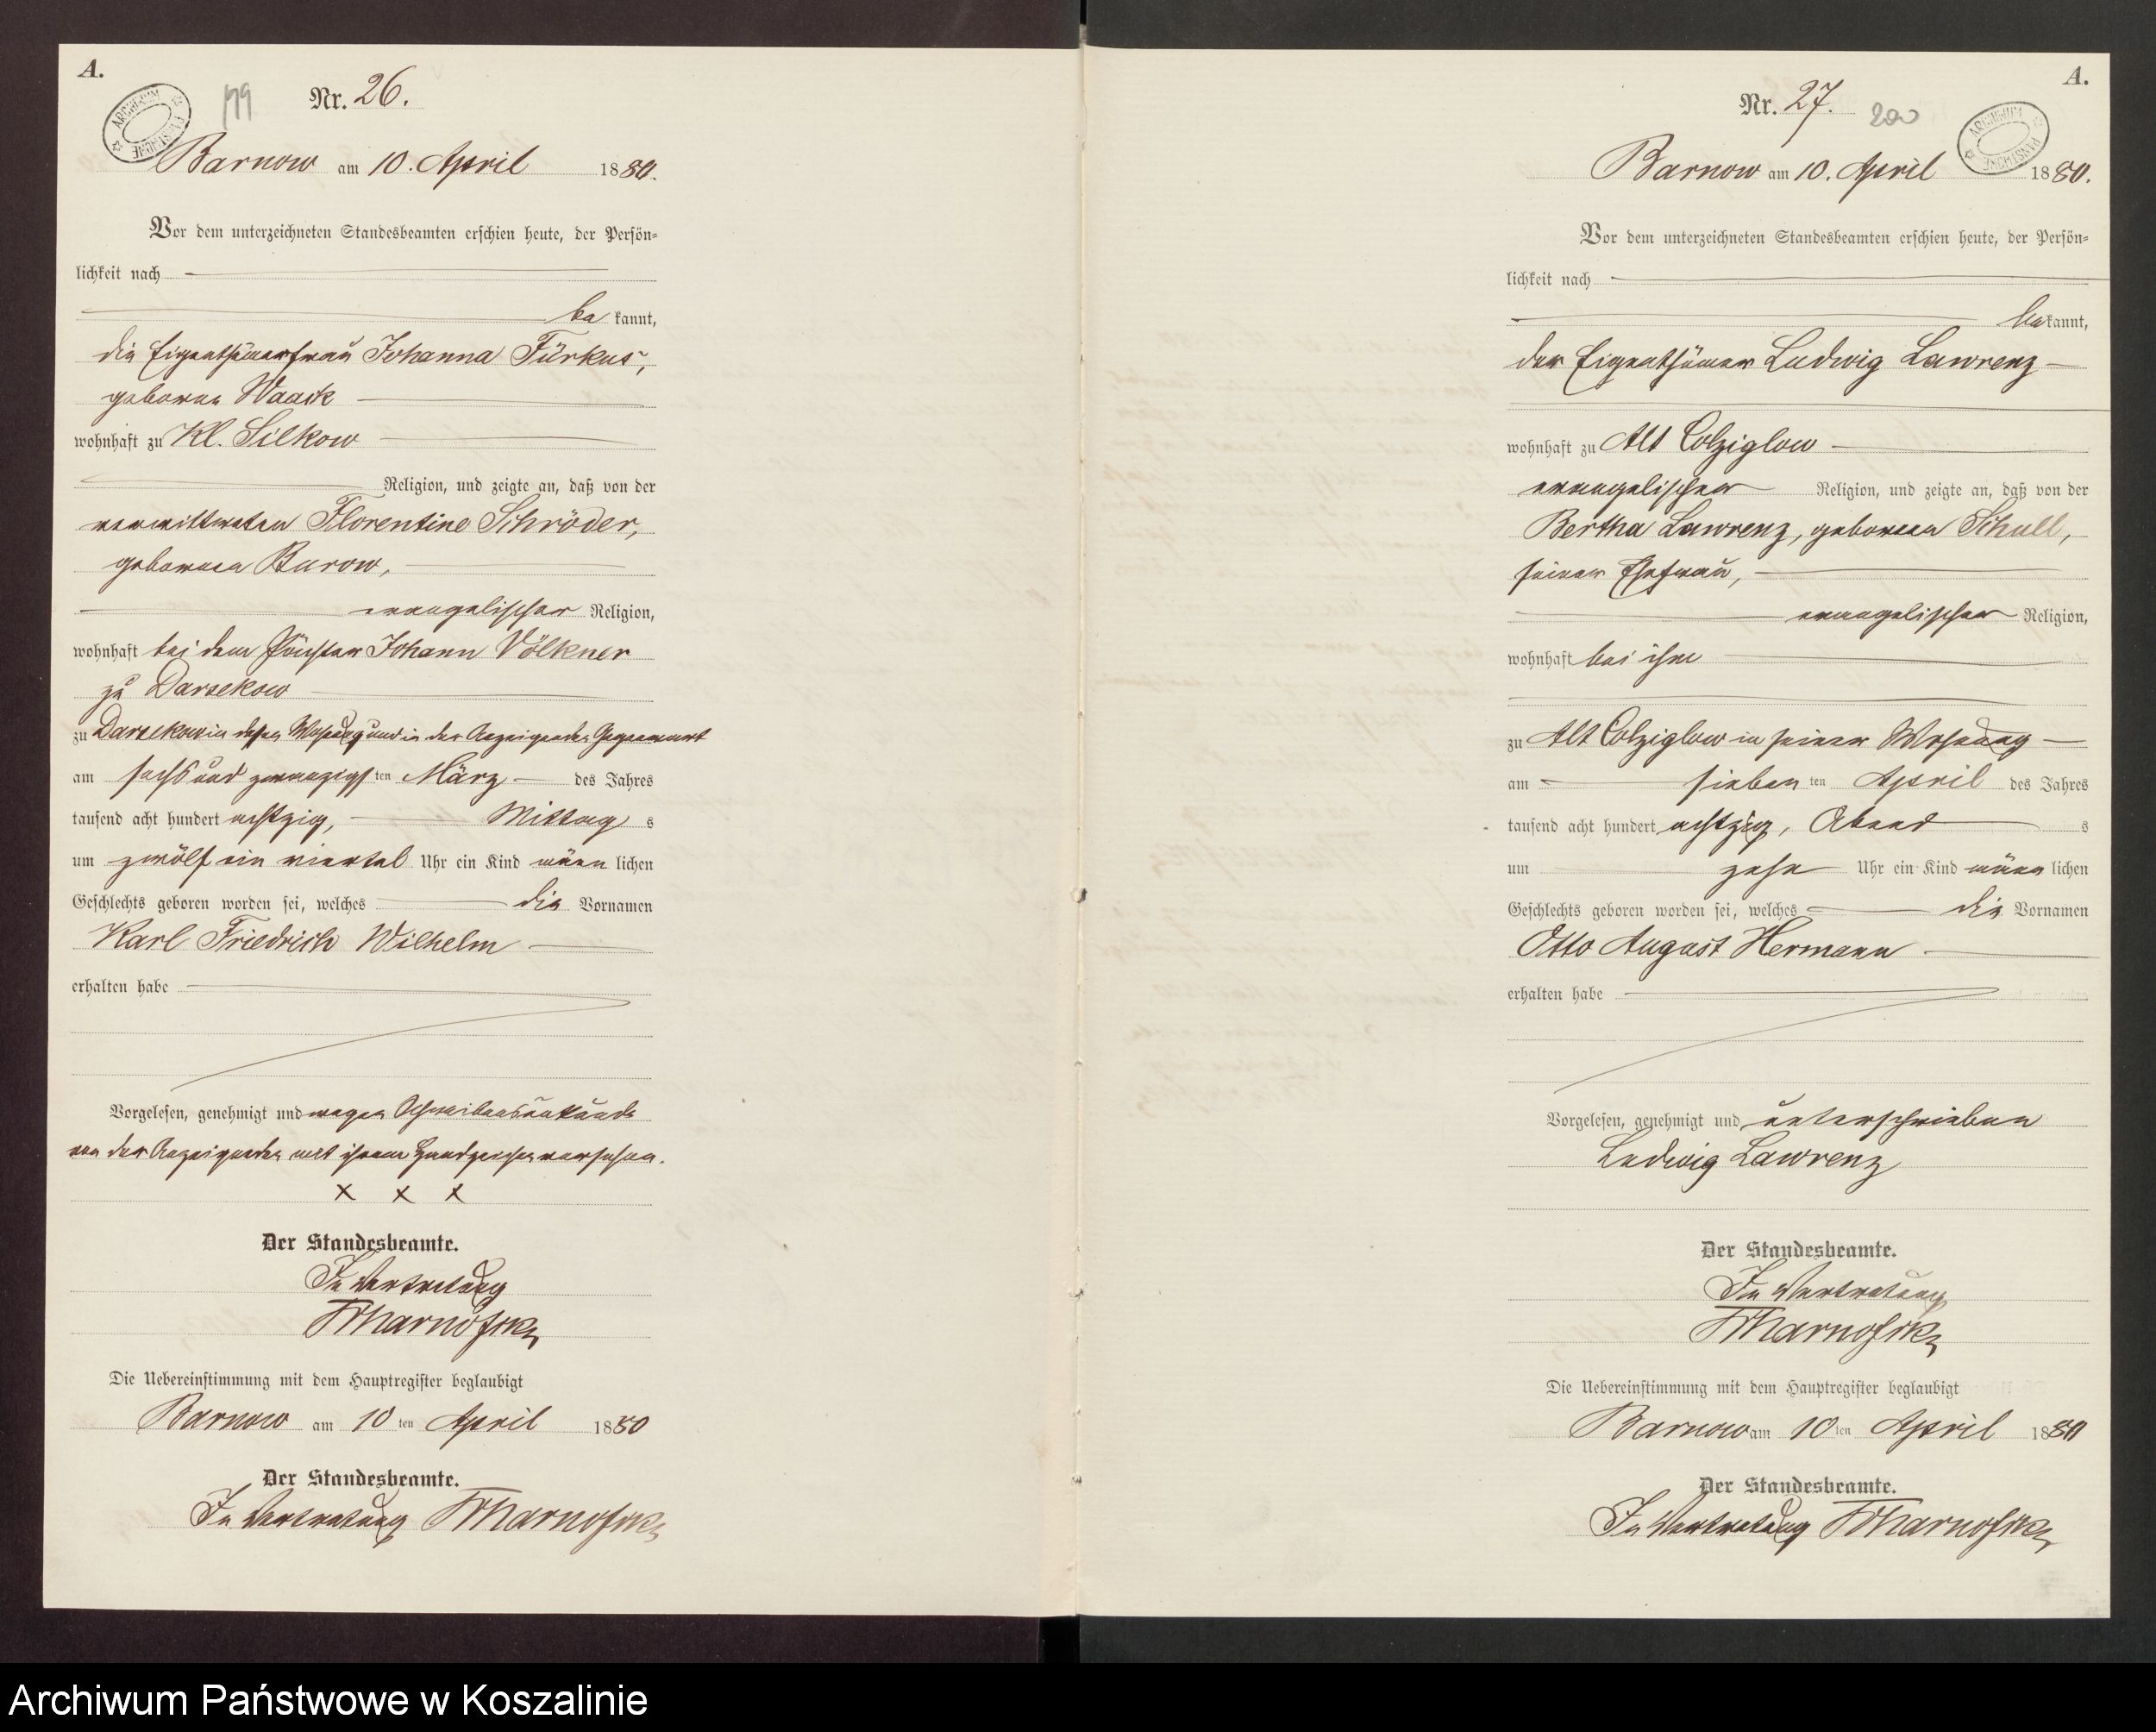 A.
199
Nr. 26.
Barnow am 10. April 1880.
Vor dem unterzeichneten Standesbeamten erschien heute, der Persön-
lichkeit nach
be kannt,
die Eigenthümerfrau Johanna Fürkus,
geborne Waack
wohnhaft zu Kl. Silkow
Religion, und zeigte an, daß von der
verwittweten Florentine Schröder,
gebornen Burow,
evangelischer Religion,
wohnhaft bei dem Johann Völkner
zu Darsekow
zu Darsekow in dessen Wohnung und in der Anzeigenden Gegenwart
am sechs und zwanzigsten März des Jahres
tausend acht hundert achtzig, Mittag s
um zwölf ein viertel Uhr ein Kind männ lichen
Geschlechts geboren worden sei, welches die Vornamen
Karl Friedrich Wilhelm
erhalten habe
Vorgelesen, genehmigt und wegen Schreibensunkunde
von der Anzeigenden mit ihrem Handzeichen versehen.
x x x
Der Standesbeamte.
In Vertretung
Die Uebereinstimmung mit dem Hauptregister beglaubigt
Barnow am 10 ten April 1880
Der Standesbeamte.
In Vertretung
A.
Nr. 27.
200
Barnow am 10. April 1880.
Vor dem unterzeichneten Standesbeamten erschien heute, der Persön-
lichkeit nach
bekannt,
der Eigenthümer Ludwig Lawrenz
wohnhaft zu Alt Colziglow
evangelischer Religion, und zeigte an, daß von der
Bertha Lawrenz, gebornen Schull,
seiner Ehefrau,
evangelischer Religion,
wohnhaft bei ihm
zu Alt Colziglow in seiner Wohnung
am sieben ten April des Jahres
tausend acht hundert achtzig, Abend s
um zehn Uhr ein Kind männ lichen
Geschlechts geboren worden sei, welches die Vornamen
Otto August Hermann
erhalten habe
Vorgelesen, genehmigt und unterschrieben
Ludwig Lawrenz
Der Standesbeamte.
In Vertretung
Die Uebereinstimmung mit dem Hauptregister beglaubigt
Barnow am 10 ten April 1880
Der Standesbeamte.
In Vertretung
Archiwum Państwowe w Koszalinie